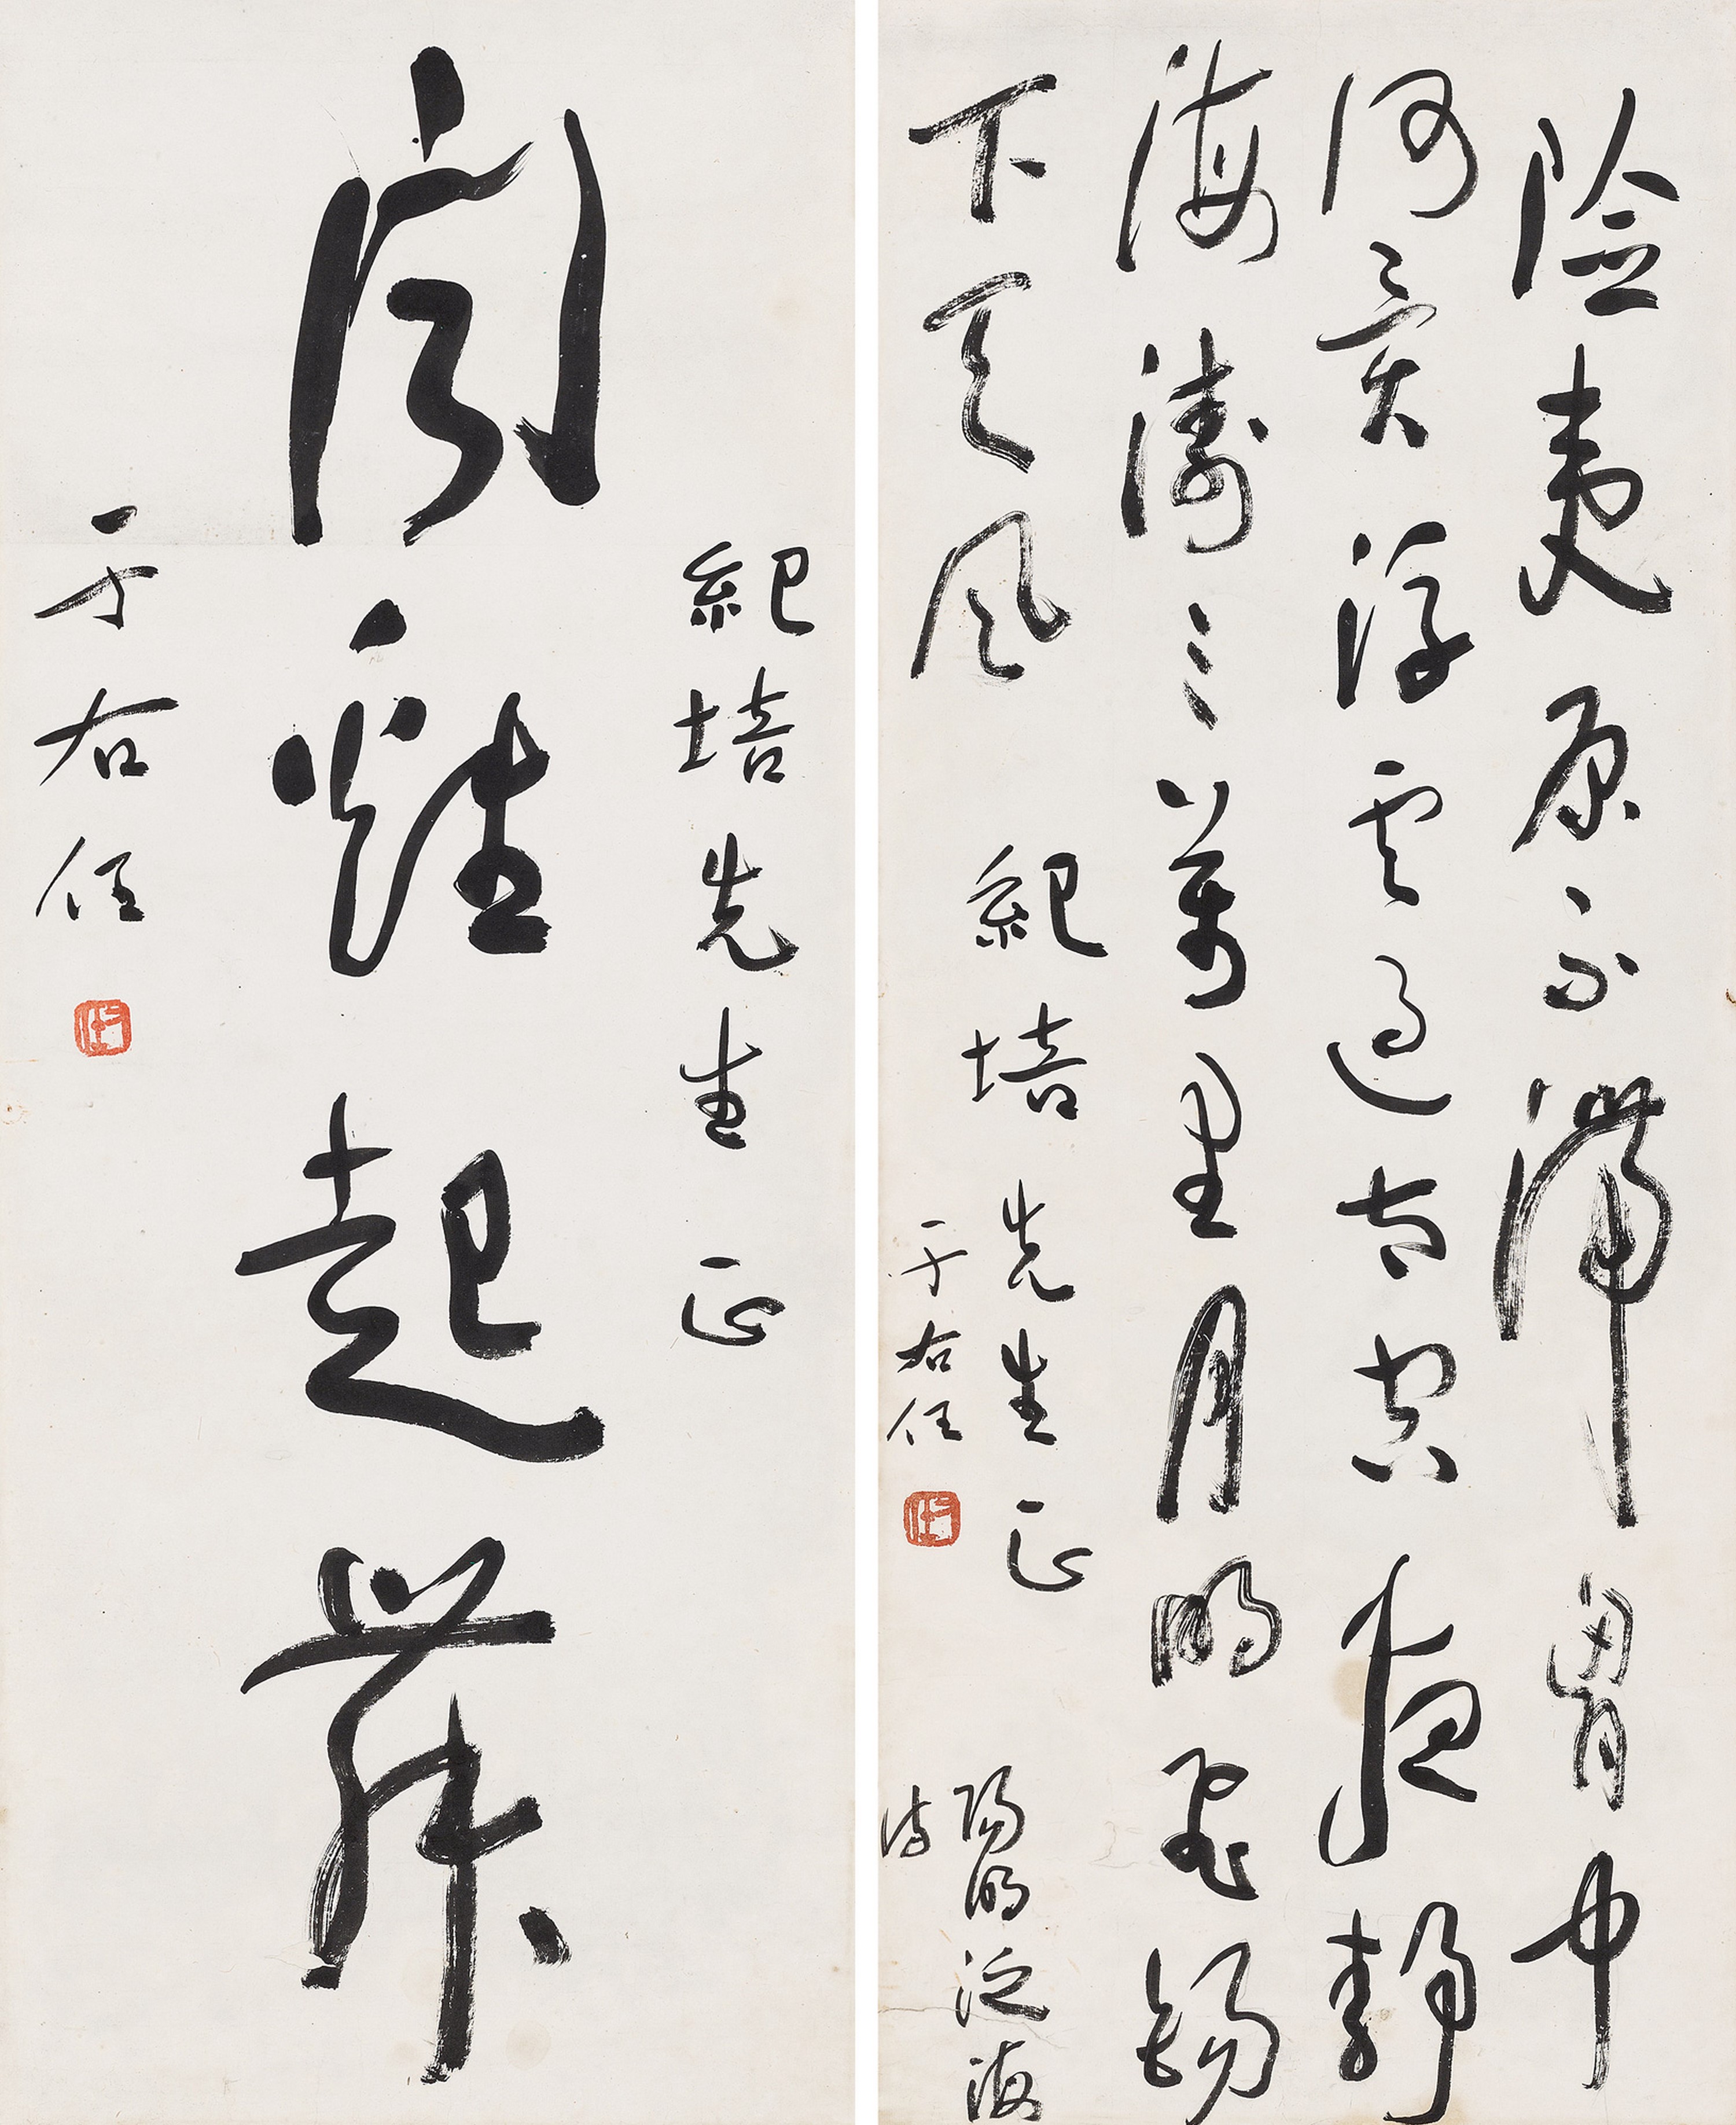 險夷原不滯胷中
何異浮雲過太空夜靜
海濤三萬里月明飛錫
下天風
紀培先生正
于右任
陽明泛海
詩
紀培先生正
聞雞起舞
于右任